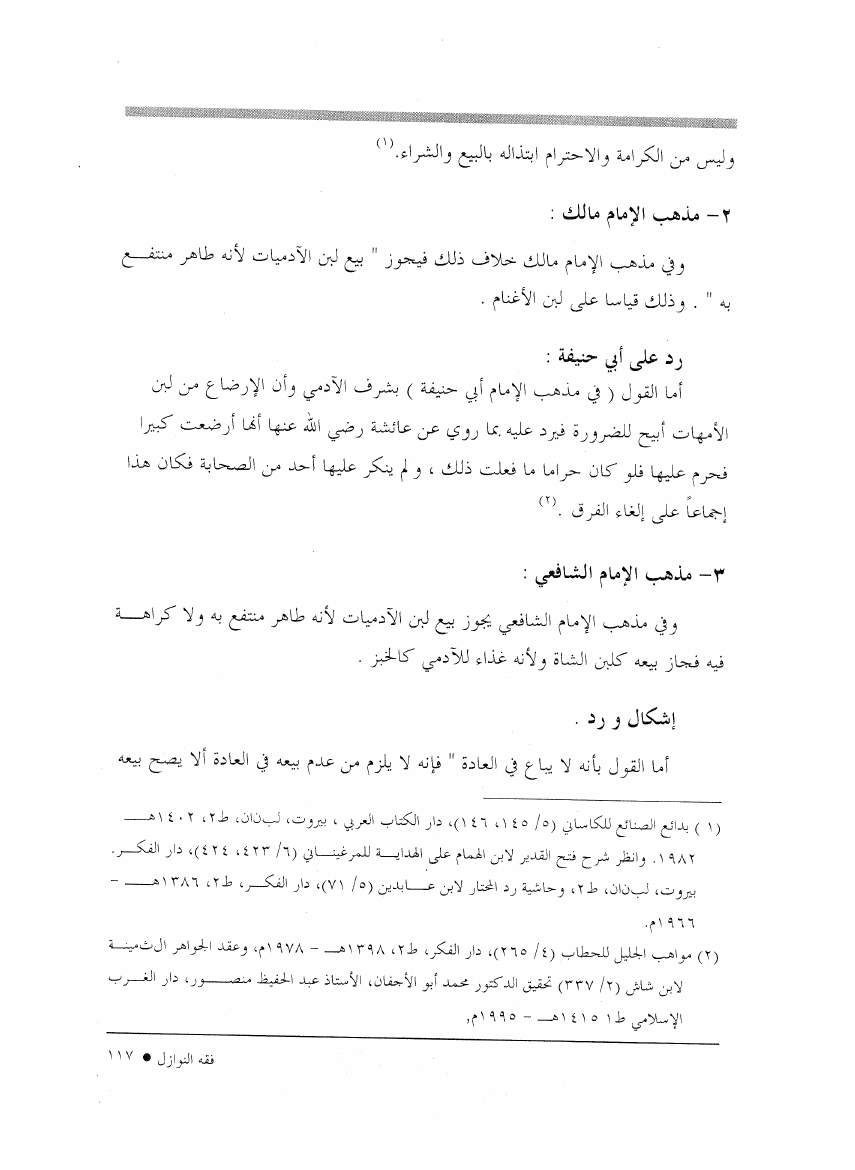 وليس من الكرامة والاحترام ابتذاله بالبيع والشراء.(١)
٢- مذهب الإمام مالك :
وفي مذهب الإمام مالك خلاف ذلك فيجوز " بيع لبن الآدميات لأنه طاهر منتفع
به " . وذلك قياسا على لبن الأغنام .
رد على أبي حنيفة :
أما القول ( في مذهب الإمام أبي حنيفة ) بشرف الآدمي وأن الإرضاع من لبن
الأمهات أبيح للضرورة فيرد عليه بما روي عن عائشة رضي الله عنها أنها أرضعت كبيرا
فحرم عليها فلو كان حراما ما فعلت ذلك ، و لم ينكر عليها أحد من الصحابة فكان هذا
إجماعاً على إلغاء الفرق .(٢)
٣- مذهب الإمام الشافعي :
وفي مذهب الإمام الشافعي يجوز بيع لبن الآدميات لأنه طاهر منتفع به ولا كراهة
فيه فجاز بيعه كلبن الشاة ولأنه غذاء للآدمي كالخبز .
إشكال و رد .
أما القول بأنه لا يباع في العادة " فإنه لا يلزم من عدم بيعه في العادة ألا يصح بيعه
(١ ) بدائع الصنائع للكاساني (٥/ ١٤٥، ١٤٦)، دار الكتاب العربي ، بيروت، لبنان، ط٢، ١٤٠٢هـ
١٩٨٢. وانظر شرح فتح القدير لابن الهمام على الهداية للمرغيناني (٦/ ٤٢٣، ٤٢٤)، دار الفكر.
بيروت، لبنان، ط٢، وحاشية رد المختار لابن عابدين (٥/ ٧١)، دار الفكر، ط٢، ١٣٨٦هـ -
١٩٦٦م.
(٢) مواهب الجليل للحطاب (٤/ ٢٦٥)، دار الفكر، ط٢، ١٣٩٨هـ - ١٩٧٨م، وعقد الجواهر الثمينة
لابن شاش (٢/ ٣٣٧) تحقيق الدكتور محمد أبو الأجفان، الأستاذ عبد الحفيظ منصور، دار الغرب
الإسلامي ط١ ١٤١٥هـ - ١٩٩٥م,
فقه النوازل ● ١١٧